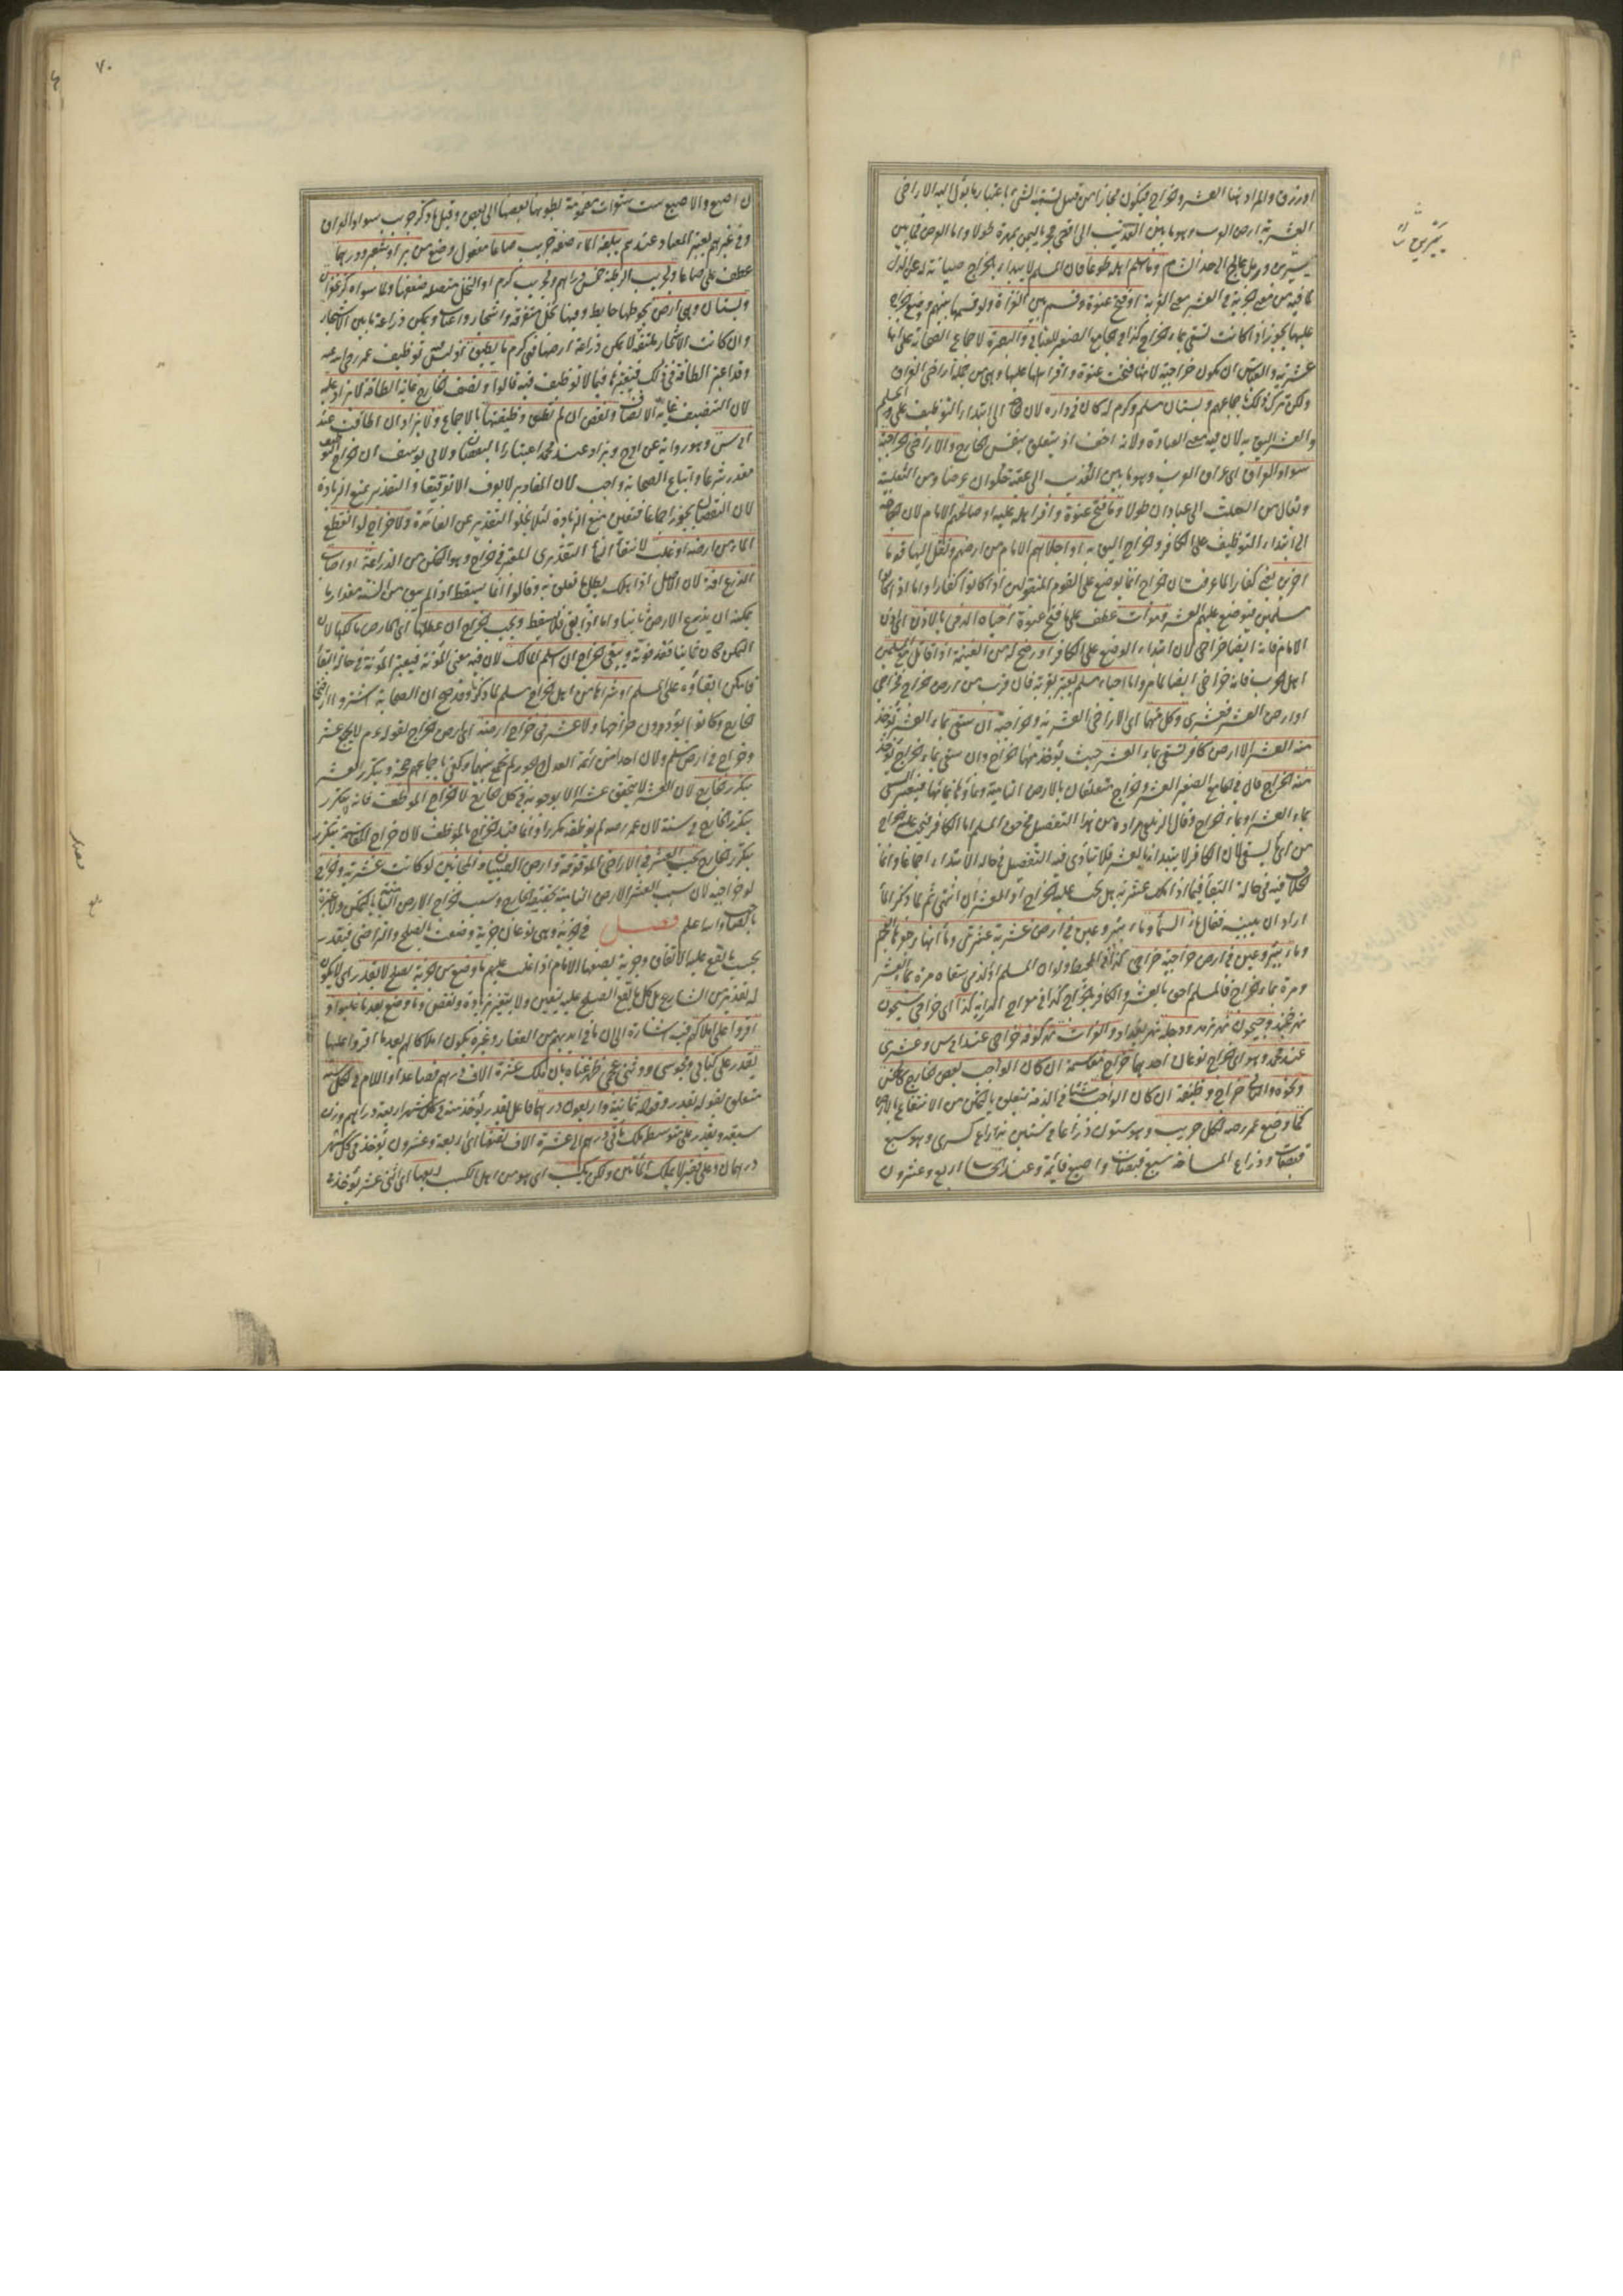 او رزق والمراد بها العشر وخراج فيكون مجازا من قبيل تسمية الشئ باعتبار ما يؤل اليه الاراضى
العشرية ارض العرب وهو ما بين العذيب الى اقصى حجر باليمن بمهرة طولا واما العرض فما بين
يبرين ورمل عالج الى حد الشام وما اسلم اهله طوعا فان المسلم لا يبدأ بالخراج صيانة له عن الذل
لما فيه من معنى الجزية وفى العشر معنى القربة او فتح عنوة وقسم بين الغزاة ولو قسمها بينهم ووضع الخراج
عليها يجوز اذا كانت تسقى بماء الخراج كذا فى الجامع الصغير للعتابى والبصرة لاجماع الصحابة على انها
عشرية والقياس ان تكون خراجية لانها فتحت عنوة واقر اهلها عليها وهى من جملة اراضى العراق
ولكن ترك ذلك باجماعهم وبستان مسلم وكرم له كان فى داره لان الحاجة الى ابتداء التوظيف على المسلم
والعشر اليق به لان فيه معنى العبادة ولانه اخف اذ يتعلق بنفس الخارج والاراضى الخراجية
سواد العراق اى عراق العرب وهو ما بين العذيب الى عقبة حلوان عرضا ومن الثعلبية
ويقال من العلث الى عبادان طولا وما فتح عنوة واقر اهله عليه او صالحهم الامام لان الحاجة
الى ابتداء التوظيف على الكافر والخراج اليق به او اجلاهم الامام من ارضهم ونقل اليها قوما
اخرين يعنى كفارا لما عرفت ان الخراج انما يوضع على القوم المنقولين اذا كانوا كفارا واما اذا كانوا
مسلمين فيوضع عليهم العشر وموات عطف على ما فتح عنوة احياه الذمى بالاذن اى اذن
الامام فانه ايضا خراجى لان ابتداء الوضع على الكافر او رضخ له من الغنيمة اذا قاتل مع المسلمين
اهل الحرب فانه خراجى ايضا لما مر واما احياء مسلم يعتبر بقربه فان قرب من ارض خراج فخراجى
او ارض العشر فعشرى وكل منهما اى الاراضى العشرية والخراجية ان سقى بماء العشر يؤخذ
منه العشر الا ارض كافر تسقى بماء العشر حيث يؤخذ منها الخراج وان سقى بماء الخراج يؤخذ
منه الخراج قال فى الجامع الصغير العشر والخراج متعلقان بالارض النامية ونماؤها بمائها فيعتبر السقى
بماء العشر او بماء الخراج وقال الزيلعى مراده من هذا التفصيل فى حق المسلم اما الكافر فيجب عليه الخراج
من اى ماء يسقى لان الكافر لا يبتدأ بالعشر فلا يتأتى فيه التفصيل فى حالة الابتداء اجماعا وانما
الخلاف فيه فى حالة البقاء فيما اذا ملك عشرية هل يجب عليه الخراج او العشر ان انتهى ثم لما ذكر الماء
اراد ان يبينه فقال ماء السماء وماء بئر وعين فى ارض عشرية عشرى وماء انهار حفرها العجم
وماء بئر وعين فى ارض خراجية خراجى كذا فى المحيط ولو ان المسلم او الذمى سقاه مرة بماء العشر
ومرة بماء الخراج فالمسلم احق بالعشر والكافر بالخراج كذا فى معراج الدراية كذا اى خراجى سيحون
نهر خجند وجيحون نهر ترمذ ودجلة نهر بغداد والفرات نهر كوفة خراجى عند ابى س وعشرى
عند محمد وهو اى الخراج نوعان احدهما خراج مقاسمة ان كان الواجب بعض الخارج كالخمس
ونحوه والثانى خراج وظيفة ان كان الواجب شيئا فى الذمة يتعلق بالتمكن من الانتفاع بالارض
كما وضع عمر رضه لكل جريب وهو ستون ذراعا فى ستين بذراع كسرى وهو سبع
قبضات وذراع المساحة سبع قبضات واصبع قائمة وعند الحساب اربع وعشرون
ن اصبع والاصبع ست شعيرات مضمومة بطونها بعضها الى بعض وقيل ما ذكر جريب سواد العراق
وفى غيرهم يعتبر المعتاد عندهم يبلغه الماء صفة جريب صاعا مفعول وضع من بر او شعير ودرهما
عطف على صاعا ولجريب الرطبة خمس دراهم ولجريب كرم او النخل متصلة ضعفها ولما سواه كزعفران
وبستان وهى ارض يحوطها حايط وفيها نخل متفرقة واشجار واعناب ويمكن زراعة ما بين الاشجار
وان كانت الاشجار ملتفة لا يمكن زراعة ارضها فهى كرم ما يطيق توليس توظيف عمر رضى الله عنه
وقد اعتبر الطاقة فى ذلك فنعتبرها فيما لا توظيف فيه قالوا ونصف الخارج غاية الطاقة لا يزاد عليه
لان التنصيف غاية الانصاف ونقص ان لم تطق وظيفتها بالاجماع ولا يزاد ان اطاقت عند
ابى س وهو رواية عن ابى ح ويزاد عند محمد اعتبارا بالنقصان ولابى يوسف ان خراج التوظيف
مقدر شرعا واتباع الصحابة واجب لان المقادير لا يعرف الا توقيفا والتقدير يمنع الزيادة
لان النقصان يجوز اجماعا فتعين منع الزيادة لئلا يخلو التقدير عن الفائدة ولا خراج لو انقطع
الماء من ارضه او غلب لانتفاء النماء التقديرى المعتبر فى الخراج وهو التمكن من الزراعة او اصاب
الزرع افة لان الاصل اذا هلك بطل ما تعلق به وقالوا انما يسقط اذا لم يبق من السنة مقدار ما
يمكنه ان يزرع الارض ثانيا واما اذا بقى فلا يسقط ويجب الخراج ان عطلها اى الارض مالكها لان
التمكن كان ثابتا فقد فوته ويبقى الخراج ان اسلم المالك لان فيه معنى المؤنة فيعتبر المؤنة فى حالة البقاء
فامكن ابقاؤه على المسلم او شراها من اهل الخراج مسلم لما ذكر وقد صح ان الصحابة اشتروا اراضى
الخارج وكانوا يؤدون خراجها ولا عشر فى خارج ارضه اى ارض الخراج لقوله عم لا يجتمع عشر
وخراج فى ارض مسلم ولان احدا من ائمة العدل والجور لم يجمع بينهما وكفى باجماعهم حجة ويتكرر العشر
بتكرر الخارج لان العشر لا يتحقق عشرا الا بوجوبه فى كل خارج لا الخراج الموظف فانه لا يتكرر
بتكرر الخارج فى سنة لان عمر رضه لم يوظفه مكررا وانما قيد الخراج بالموظف لان خراج المقاسمة يتكرر
بتكرر الخارج يجب العشر فى الاراضى الموقوفة وارض الصبيان والمجانين لو كانت عشرية وخراج
لو خراجية لان سبب العشر الارض النامية بحقيقة الخارج وسبب خراج الارض النامية بالتمكن ولا عبرة
بالصاحب والله اعلم فصل فى الجزية وهى نوعان جزية وضعت بالصلح والتراضى فتقدر
بحسب ما يقع عليه الاتفاق وجزية يضعها الامام اذا غلب عليهم ما وضع من الجزية بصلح لا يقدر اى لا يكون
له تقدير من الشارع بل كل ما يقع الصلح عليه يتعين ولا يتغير بزيادة ونقص وما وضع بعد ما غلبوا و
اقروا على املاكهم فيه اشارة الى ان ما فى ايديهم من العقار وغيره يكون املاكا لهم بعد ما اقروا عليها
يقدر على كتابى ومجوسى ووثنى عجمى ظهر غناه بان ملك عشرة الاف درهم فصاعدا واللام فى لكل سنة
متعلق بقوله يقدر وقوله ثمانية واربعون درهما فاعل يقدر يؤخذ منه فى كل شهر اربعة دراهم وزن
سبعة ويقدر على متوسط ملك مأتى درهم الى عشرة الاف نصفها اى اربعة وعشرون يؤخذ فى كل شهر
درهمان وعلى فقير لا يملك المأتين ولكن يكسب اى هو من اهل الكسب ربعها اى اثنى عشر يؤخذ فى